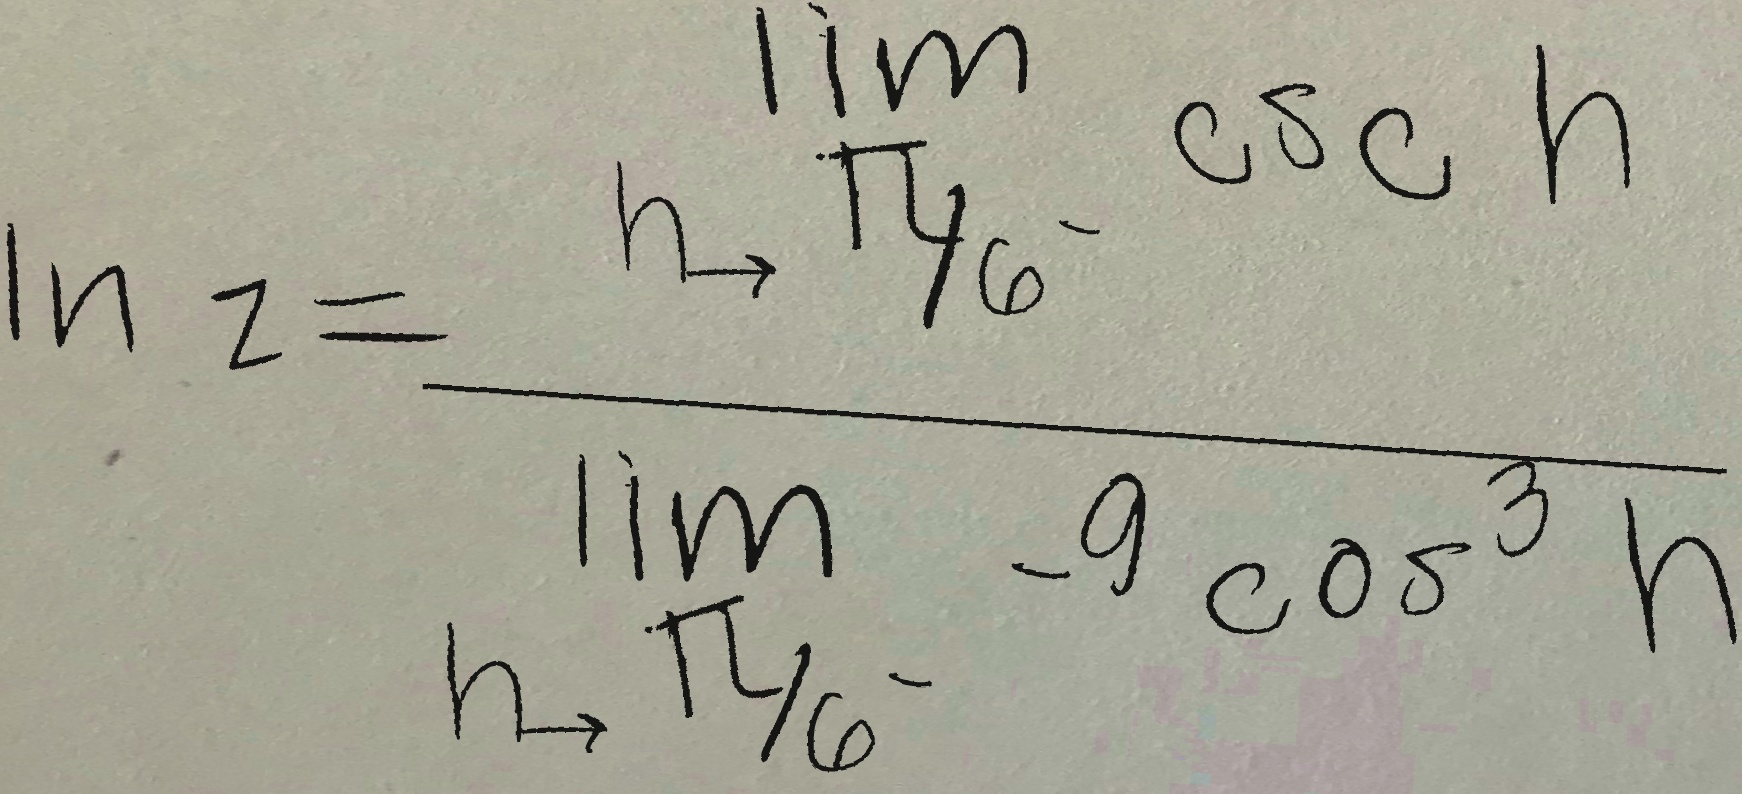 \ln z = \frac{\lim_{h \to \pi/6^-} \csc h}{\lim_{h \to \pi/6^-} -9 \cos^3 h}